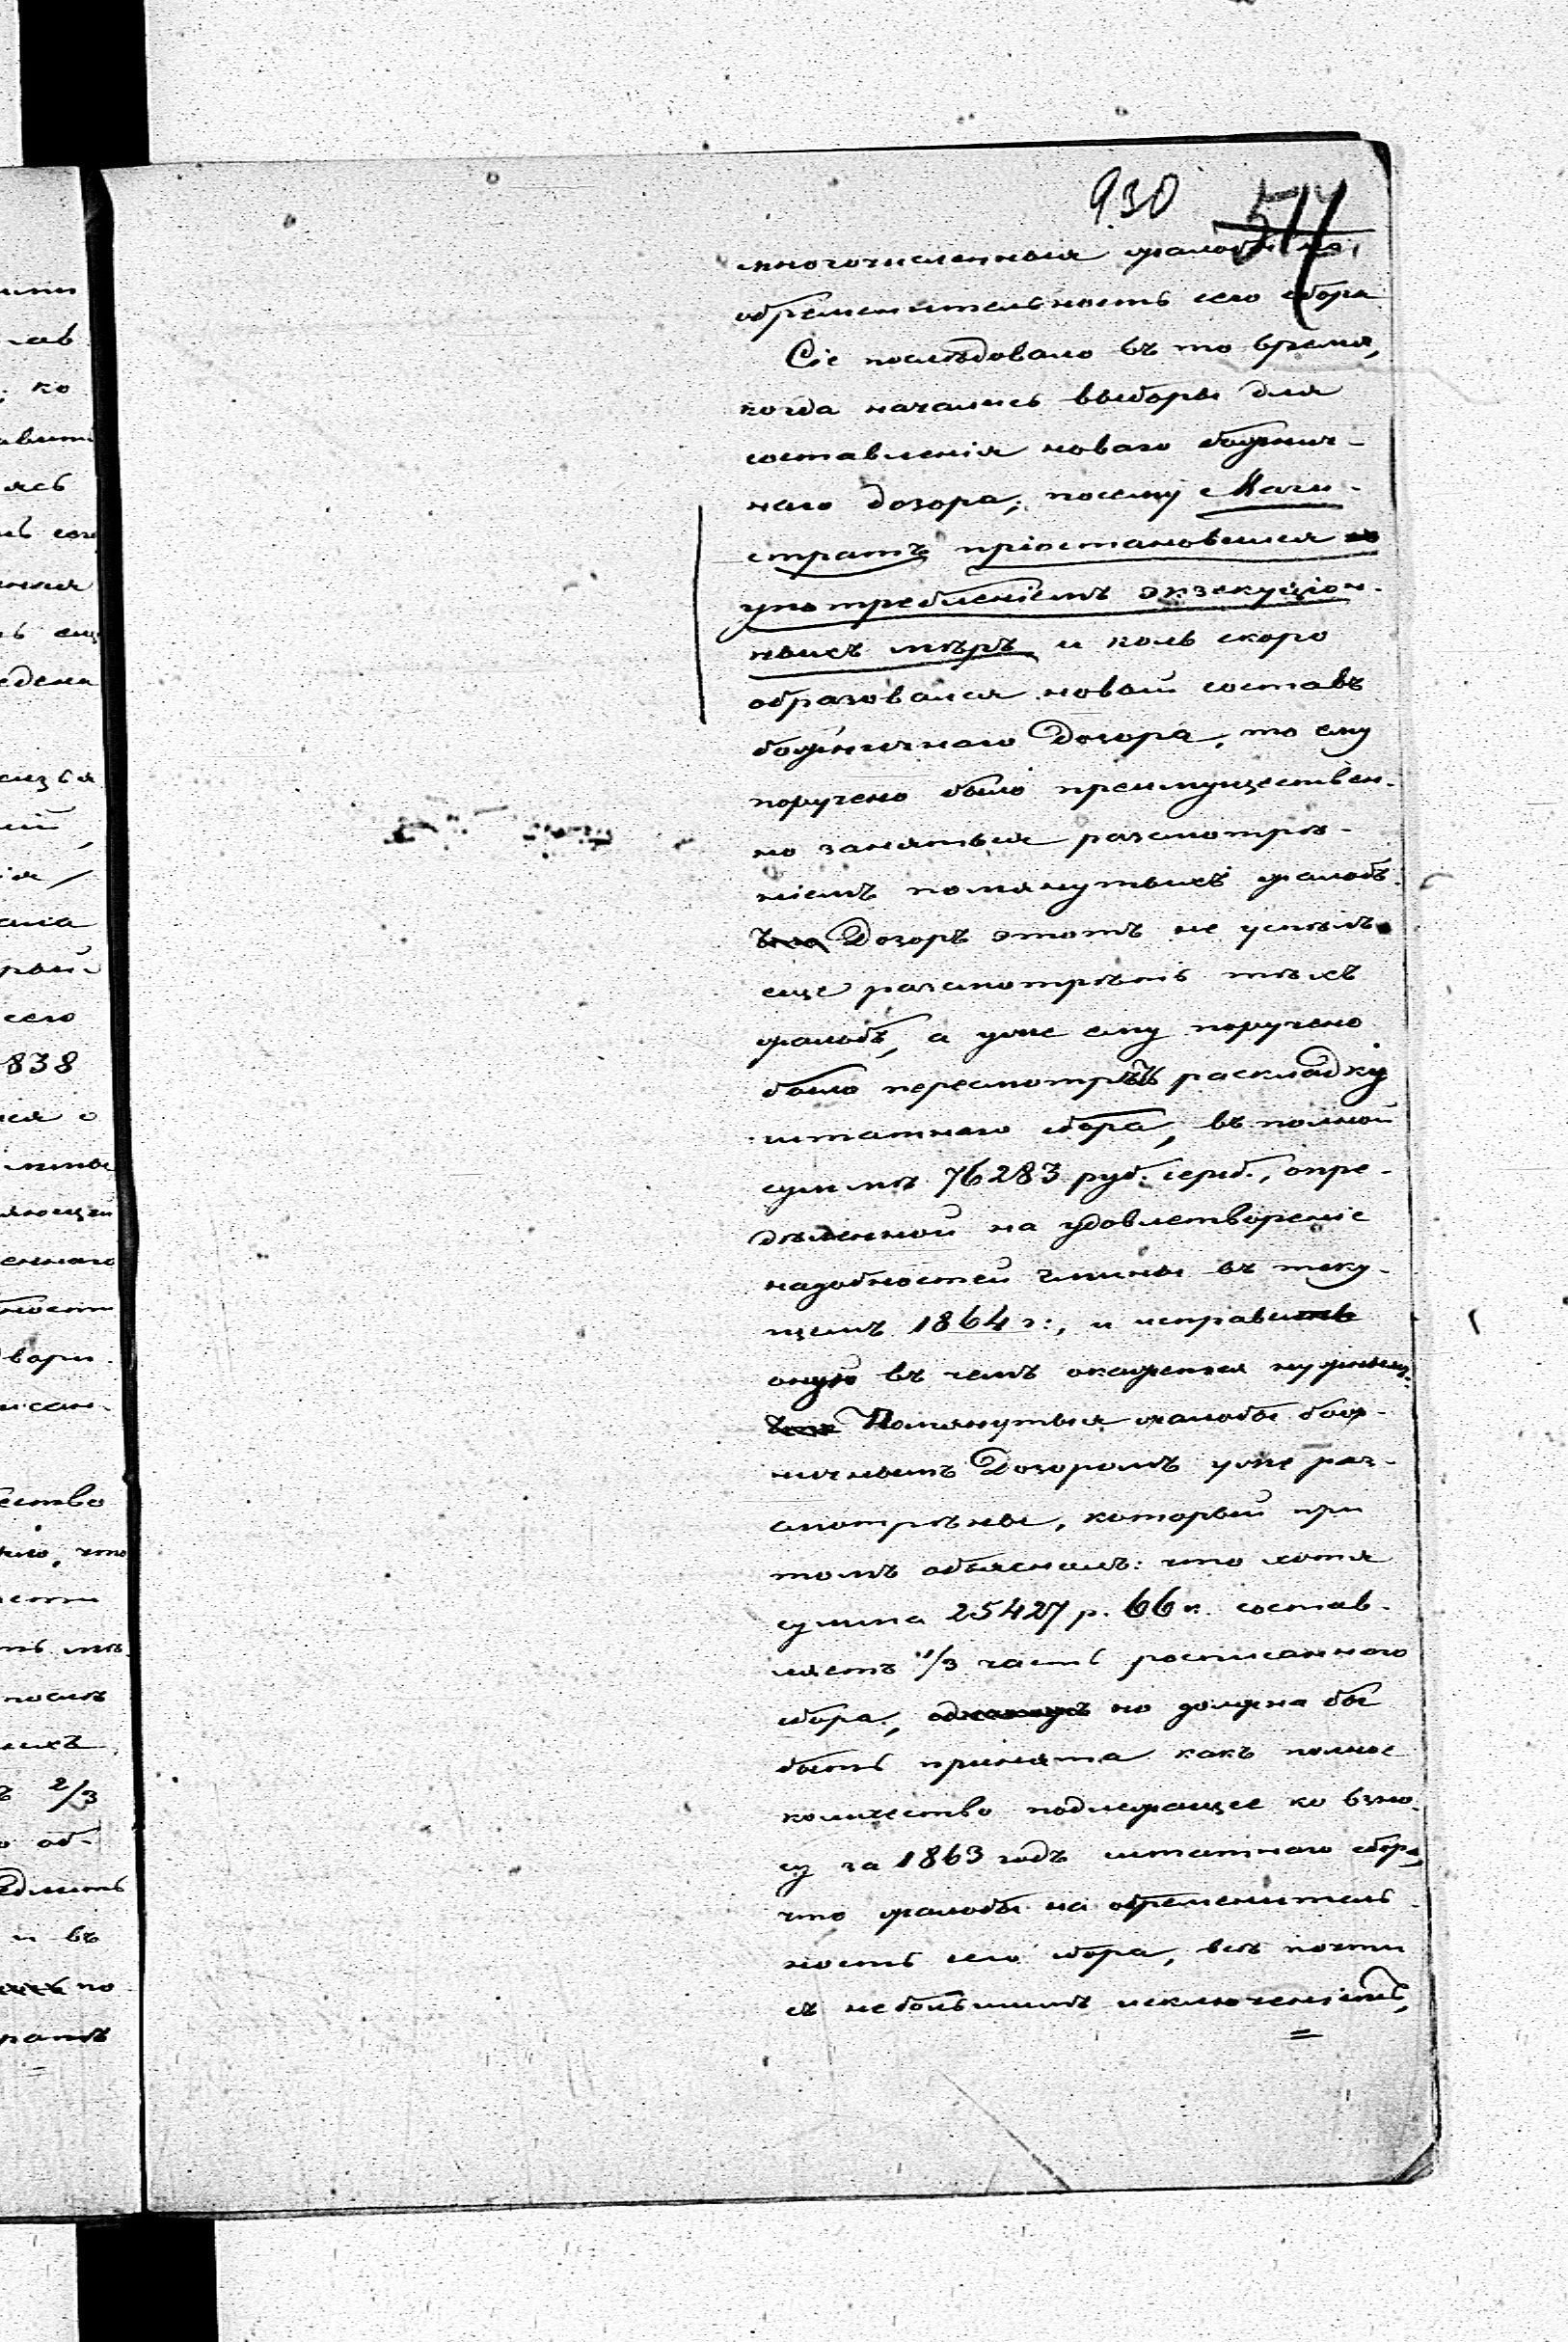 930 574
многочисленныя жалобы на
обременительность сего сбора
Сіе послѣдовало въ то время,
когда начались выборы для
составленія новаго божнич-
наго дозора; посему Маги-
стратъ пріостановился
употребленіемъ экзекуціон-
ныхъ мѣръ и коль скоро
образовался новый составъ
божничнаго Дозора, то ему
поручено было преимуществен-
но заняться разсмотрѣ-
ніемъ помянутыхъ жалобъ.
Дозоръ этотъ не успѣлъ
еще разсмотрѣть тѣхъ
жалобъ, а уже ему поручено
было пересмотрѣть раскладку
штатнаго сбора, въ полной
суммѣ 76283 руб. сереб., опре-
дѣленной на удовлетвореніе
надобностей гмины въ теку-
щемъ 1864 г:, и исправить
оную въ чемъ окажется нужнымъ.
Помянутыя жалобы бож-
ничнымъ Дозоромъ уже раз-
смотрѣны, который при
томъ объяснилъ: что хотя
сумма 25427 р. 66 к. состав-
ляетъ 1/3 часть росписаннаго
сбора, однакожъ но должна бы
быть принята какъ полное
количество подлежащее ко взно-
су за 1863 годъ штатнаго сбора,
что жалобы на обременитель-
ность сего сбора, всѣ почти
съ небольшимъ исключеніемъ,
838
2/3